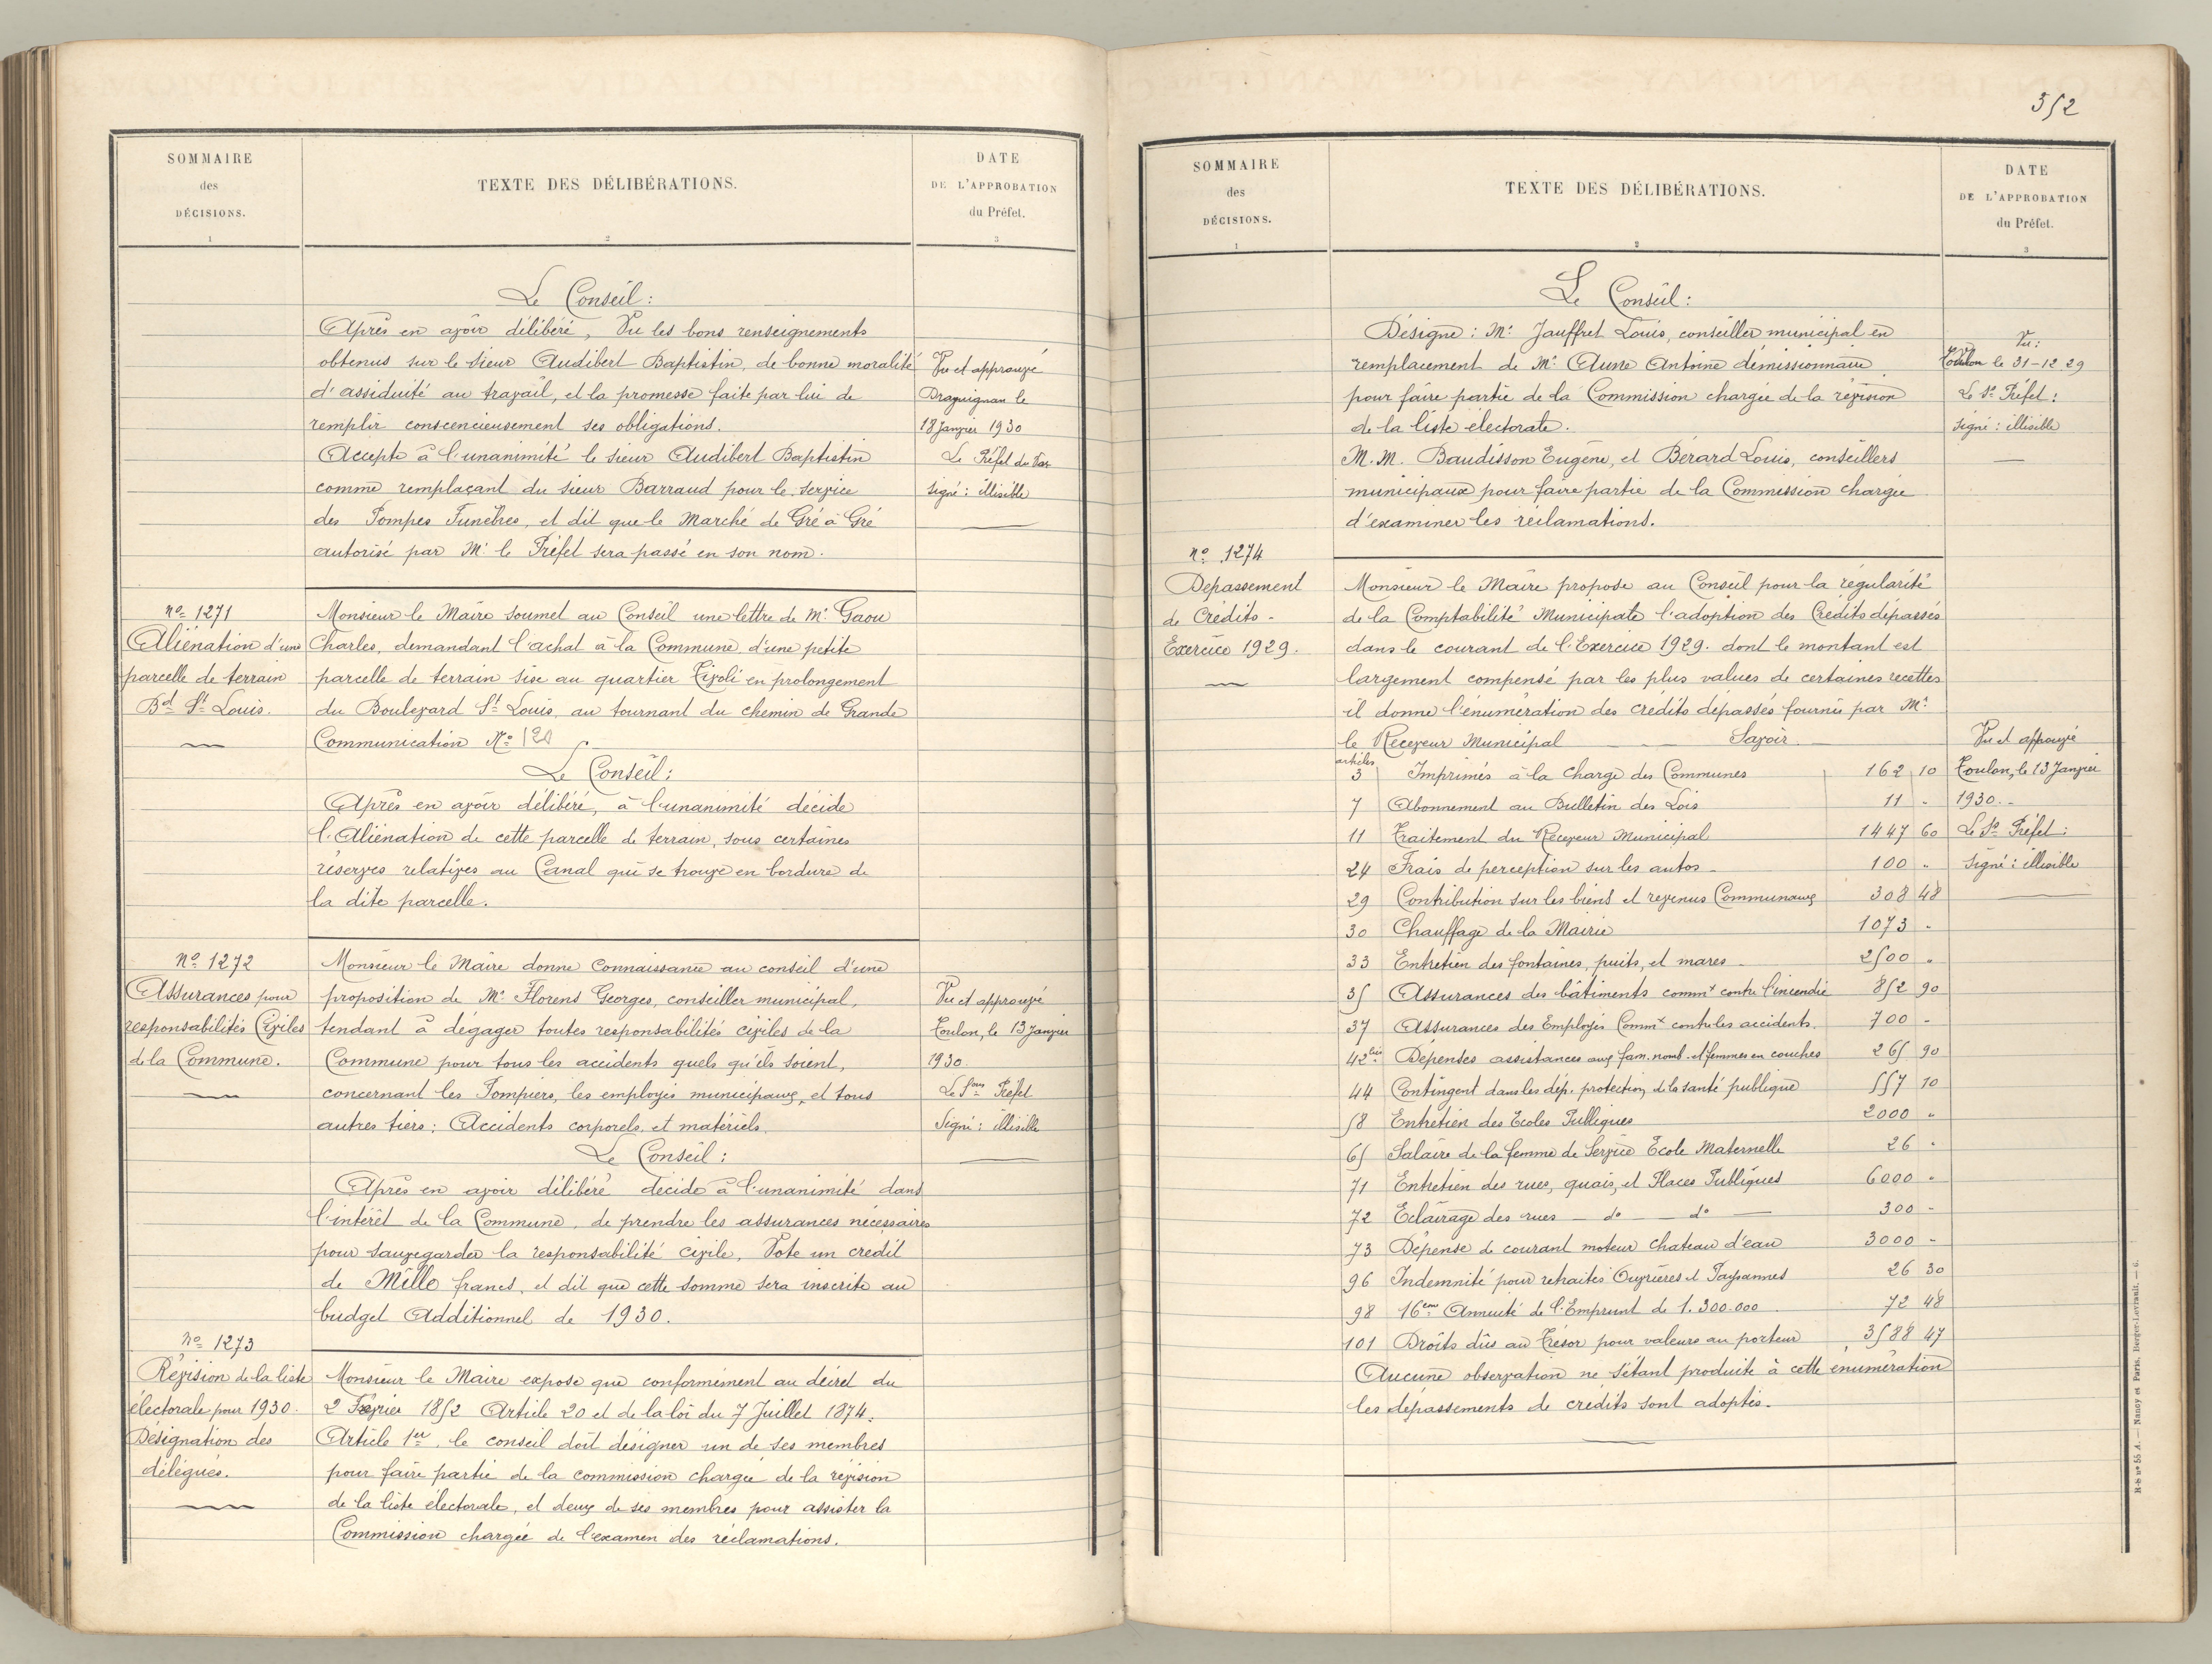 SOMMAIRE
des
DÉCISIONS.
1
TEXTE DES DÉLIBÉRATIONS.
2
DATE
DE L'APPROBATION
du Préfet.
3
Le Conseil:
Après en avoir délibéré, Vu les bons renseignements
obtenus sur le sieur Audibert Baptistin, de bonne moralité
d'assiduité au travail, et la promesse faite par lui de
remplir conscencieusement ses obligations.
Accepte à l'unanimité le sieur Audibert Baptistin
comme remplaçant du sieur Barraud pour le service
des Pompes Funèbres, et dit que le Marché de Gré à Gré
autorisé par Mr le Préfet sera passé en son nom.
Vu et approuvé
Draguignan le
18 Janvier 1930
Le Préfet du Var
signé: illisible
No 1271
Aliénation d'une
parcelle de terrain
Bd St Louis.
Monsieur le Maire soumet au Conseil une lettre de Mr Gaou
Charles, demandant l'achat à la Commune d'une petite
parcelle de terrain sise au quartier Tivoli en prolongement
du Boulevard St Louis, au tournant du chemin de Grande
Communication No
Le Conseil:
Après en avoir délibéré, à l'unanimité décide
l'Aliénation de cette parcelle de terrain, sous certaines
réserves relatives au Canal qui se trouve en bordure de
la dite parcelle.
No 1272
Assurances pour
responsabilités Civiles
de la Commune.
Monsieur le Maire donne Connaissance au conseil d'une
proposition de Mr Florens Georges, conseiller municipal,
tendant à dégager toutes responsabilités civiles de la
Commune pour tous les accidents quels qu'ils soient,
concernant les Pompiers, les employés municipaux, et tous
autres tiers: Accidents corporels, et matériels.
Le Conseil:
Après en avoir délibéré décide à l'unanimité dans
l'intérêt de la Commune, de prendre les assurances nécessaires
pour sauvegarder la responsabilité civile, Vote un crédit
de Mille francs, et dit que cette somme sera inscrite au
budget Additionnel de 1930.
Vu et approuvé
Toulon, le 13 Janvier
1930.
Le Sous Préfet
Signé: illisible
No 1273
Révision de la liste
électorale pour 1930.
Désignation des
délégués.
Monsieur le Maire expose que conformément au décret du
2 Février 1852 Article 20 et de la loi du 7 Juillet 1874.
Article 1er, le conseil doit désigner un de ses membres
pour faire partie de la commission chargée de la révision
de la liste électorale, et deux de ses membres pour assister la
Commission chargée de l'examen des réclamations.
352
SOMMAIRE
des
DÉCISIONS.
1
TEXTE DES DÉLIBÉRATIONS.
2
DATE
DE L'APPROBATION
du Préfet.
3
Le Conseil:
Désigne: Mr Jauffret Louis, conseiller municipal en
remplacement de Mr Aune Antoine démissionnaire
pour faire partie de la Commission chargée de la révision
de la liste électorale.
M.M. Baudisson Eugène, et Bérard Louis, conseillers
municipaux pour faire partie de la Commission chargée
d'examiner les réclamations.
Vu:
Toulon le 31-12 29
Le Ss Préfet:
signé: illisible
No 1274
Depassement
de Crédits -
Exercice 1929.
Monsieur le Maire propose au Conseil pour la régularité
de la Comptabilité Municipale l'adoption des Crédits dépassés
dans le courant de l'Exercice 1929. dont le montant est
largement compensé par les plus values de certaines recettes
il donne l'énumération des crédits dépassés fournis par Mr
le Receveur Municipal Savoir.
articles
3 Imprimés à la charge des Communes 162 10
7 Abonnement au Bulletin des Lois 11 -
11 Traitement du Receveur Municipal 1447 60
24 Frais de perception sur les autos 100 "
29 Contribution sur les biens et revenus Communaux 308 48
30 Chauffage de la Mairie 1073 -
33 Entretien des fontaines, puits, et mares 2500 "
35 Assurances des bâtiments commx contre l'incendie 852 90
37 Assurances des Employés Commx contre les accidents. 700 -
42bis Dépenses assistances aux fam. nomb. et femmes en couches 265 90
44 Contingent dans les dép. protection de la santé publique 557 10
58 Entretien des Ecoles Publiques 2000 "
65 Salaire de la femme de Service Ecole Maternelle 26 "
71 Entretien des rues, quais, et Places Publiques 6000 "
72 Eclairage des rues — do — do — 300 -
73 Dépense de courant moteur chateau d'eau 3000 -
96 Indemnité pour retraites Ouvrières et Paysannes 26 30
98 16eme Annuité de l'Emprunt de 1.300.000 72 48
101 Droits dûs au Trésor pour valeurs au porteur 3588 47
Aucune observation ne s'étant produite à cette énumération
les dépassements de crédits sont adoptés.
Vu et approuvé
Toulon, le 13 Janvier
1930.-
Le Ss Préfet:
Signé: illisible
R-S no 55 A. — Nancy et Paris, Berger-Levrault. — 6.